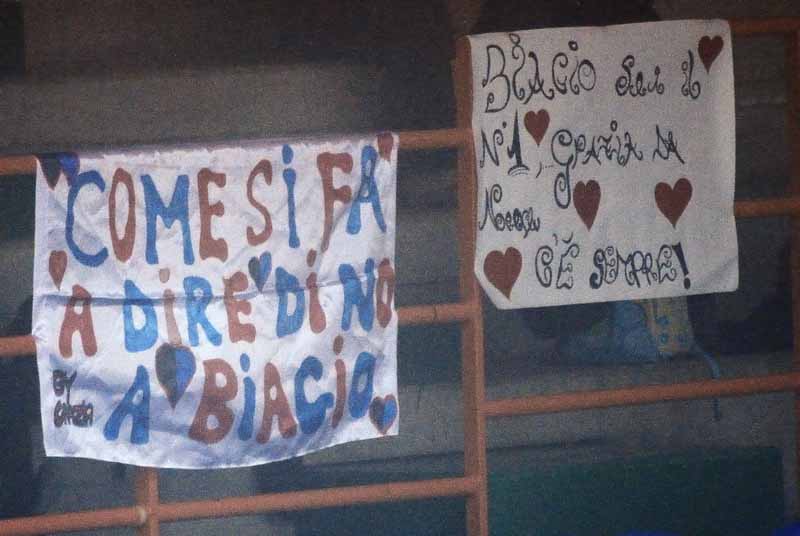 COME SI FA'
A DIRE' DI NO
A BIAGIO
BY GRAZIA
BIAGIO Sei il
N°1, GRAZIA DA
C'È SEMPRE!